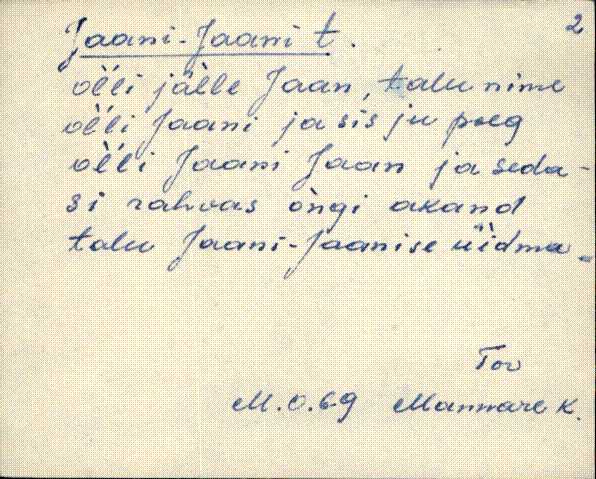 2
Jaani-Jaani t.
ol̀li jälle Jaan, talu nime
ol̀li Jaani ja sis ju poeg
ol̀li Jaani Jaan ja seda-
si rahvas òngi akand
talu Jaani-Jaanise üidma.
Tor
M.O. 69 Mannare K.